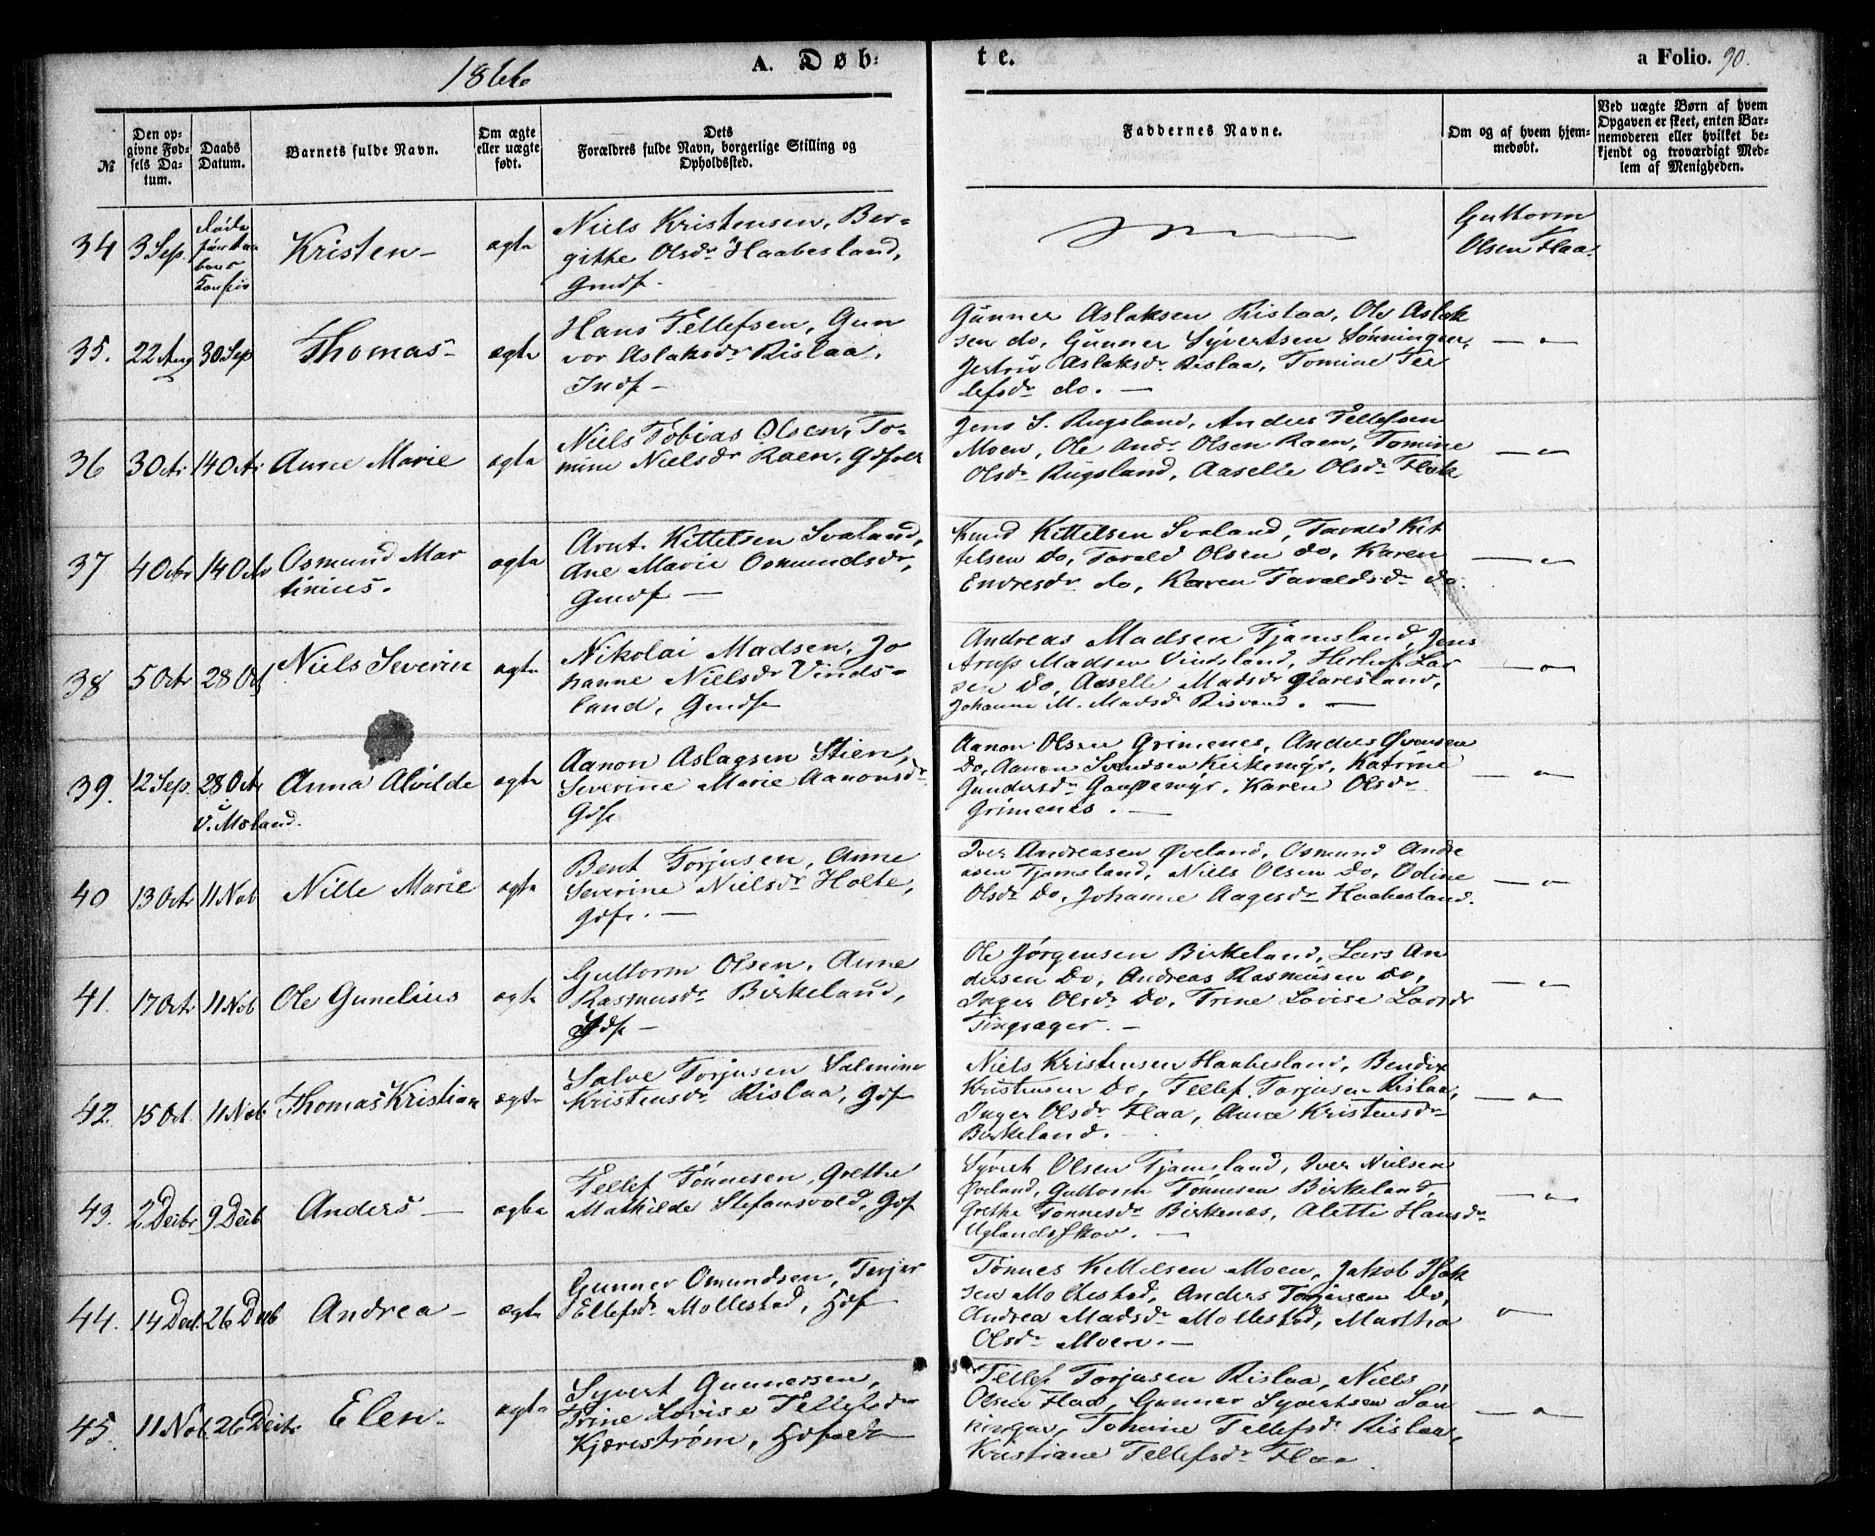 1866
A. Døb-
te.
a Folio. 90.
№
Den op-
givne Fød-
sels Da-
tum.
Daabs
Datum.
Barnets fulde Navn.
Om ægte
eller uægte
født.
Dets
Forældres fulde Navn, borgerlige Stilling og
Opholdssted.
Faddernes Navne.
Om og af hvem hjem-
medøbt.
Ved uægte Børn af hvem
Opgaven er skeet, enten Bar-
nemoderen eller hvilket be-
kjendt og troværdigt Med-
lem af Menigheden.
34
3 Sep.
Kristen-
ægte
Niels Kristensen, Ber-
githe Olsdr Haabesland,
Gmdf.
Guttorm
Olsen Flaa.
35.
22 Aug
30 Sep
Thomas-
ægte
Hans Tellefsen, Gun
vor Aslaksdr Rislaa,
Indf-
Gunner Aslaksen Rislaa, Ole Aslak
sen do, Gunner Syvertsen Sønningen,
Aslaksdr Rislaa, Tomine Tel
lefsdr do. —
— „ —
36
3 Octr
14 Octr
Anne Marie
ægte
Niels Tobias Olsen, To-
mine Nielsdr Raen,
Jens S. Rugsland, Anders Tellefsen
Moen, Ole Andr Olsen Raen, Tomine
Olsdr Rugsland, Aaselle Olsdr Flak
— „ —
37
4 Octr
14 Octr
Osmund Mar
tinius.
ægte
Arnt Kittelsen Svaland,
Ane Marie Osmundsdr,
Gmdf —
Knud Kittelsen Svaland, Tarald Kit
telsen do, Tarald Olsen do, Karen
Endresdr do, Karen Taraldsdr do.
— „ —
38
5 Octr
28 Oct
Niels Severin
ægte
Nikolai Madsen, Jo
hanne Nielsdr Vinds-
land, Gmdf
Andreas Madsen Tjamsland, Jens
Madsen Vindsland, Herlof Lar
sen Do, Aaselle Madsdr
Johanne M. Madsd Risvand. —
— „ —
39.
12 Sep.
28 Octr
V. Moland.
Anna Alvilde
ægte
Aanon Aslagsen Stien,
Severine Marie Aanonsdr
Gdf
Aanon Olsen Grimenes, Anders Øvensen
Do, Aanon Svendsen Kirkemyr, Katrine
Gundersdr Gaasemyr, Karen Olsdr
Grimenes. —
— „ —
40
13 Octr
11 Nob
Nille Marie
ægte
Bent Torjusen, Anne
Severine Nielsdr Holte,
Gdf. —
Iver Andreasen Øveland, Osmund Andre
asen Tjamsland, Niels Olsen Do, Odine
Olsdr Do, Johanne Aagesdr Haabesland.
— „ —
41.
17 Octr
11 Nob
Ole Gunelius
ægte
Guttorm Olsen, Anne
Rasmusdr Birkeland,
Gdf —
Ole Jørgensen Birkeland, Lars An
dersen Do, Andreas Rasmusen Do,
Inger Olsdr Do, Trine Lovise Larsdr
Tingsager. —
— „ —
42.
15 Oct.
11 Nob
Thomas Kristian
ægte
Salve Torjusen Salmine
Kristensdr Rislaa, Gdf
Niels Kristensen Haabesland, Bendix
Kristensen Do, Tellef Torjusen Rislaa,
Inger Olsdr Flaa, Anne Kristensdr
Birkeland.
— „ —
43.
2 Decbr
9 Decb
Anders —
ægte
Tellef Tønnesen, Grethe
Mathilde Stefansvold, Gdf
Syvert Olsen Tjamsland, Iver Nielsen
Øveland, Guttorm Tønnesen Birkeland,
Grethe Tønnesdr Birkenæs, Alette Hansdr
Uglandsskov. —
— „ —
44.
14 Decb.
26 Decb
Andrea-
ægte
Gunner Omundsen, Terjer
Tellefsdr Mollestad, Hdf
Tønnes Kittelsen Moen, Jakob Isak
sen Mollestad, Anders Torjusen Do,
Andrea Madsdr Mollestad, Martha
Olsdr Moen. —
„ —
45.
11 Nob.
26 Decbr
Elen-
ægte
Syvert Gunnersen,
Trine Lovise Tellefsdr
Kjærestrøm,
Tellef Torjusen Rislaa, Niels
Olsen Flaa, Gunner Syvertsen Søn
ningen, Tomine Tellefsdr Rislaa,
Kristiane Tellefsdr Flaa.
— „ —